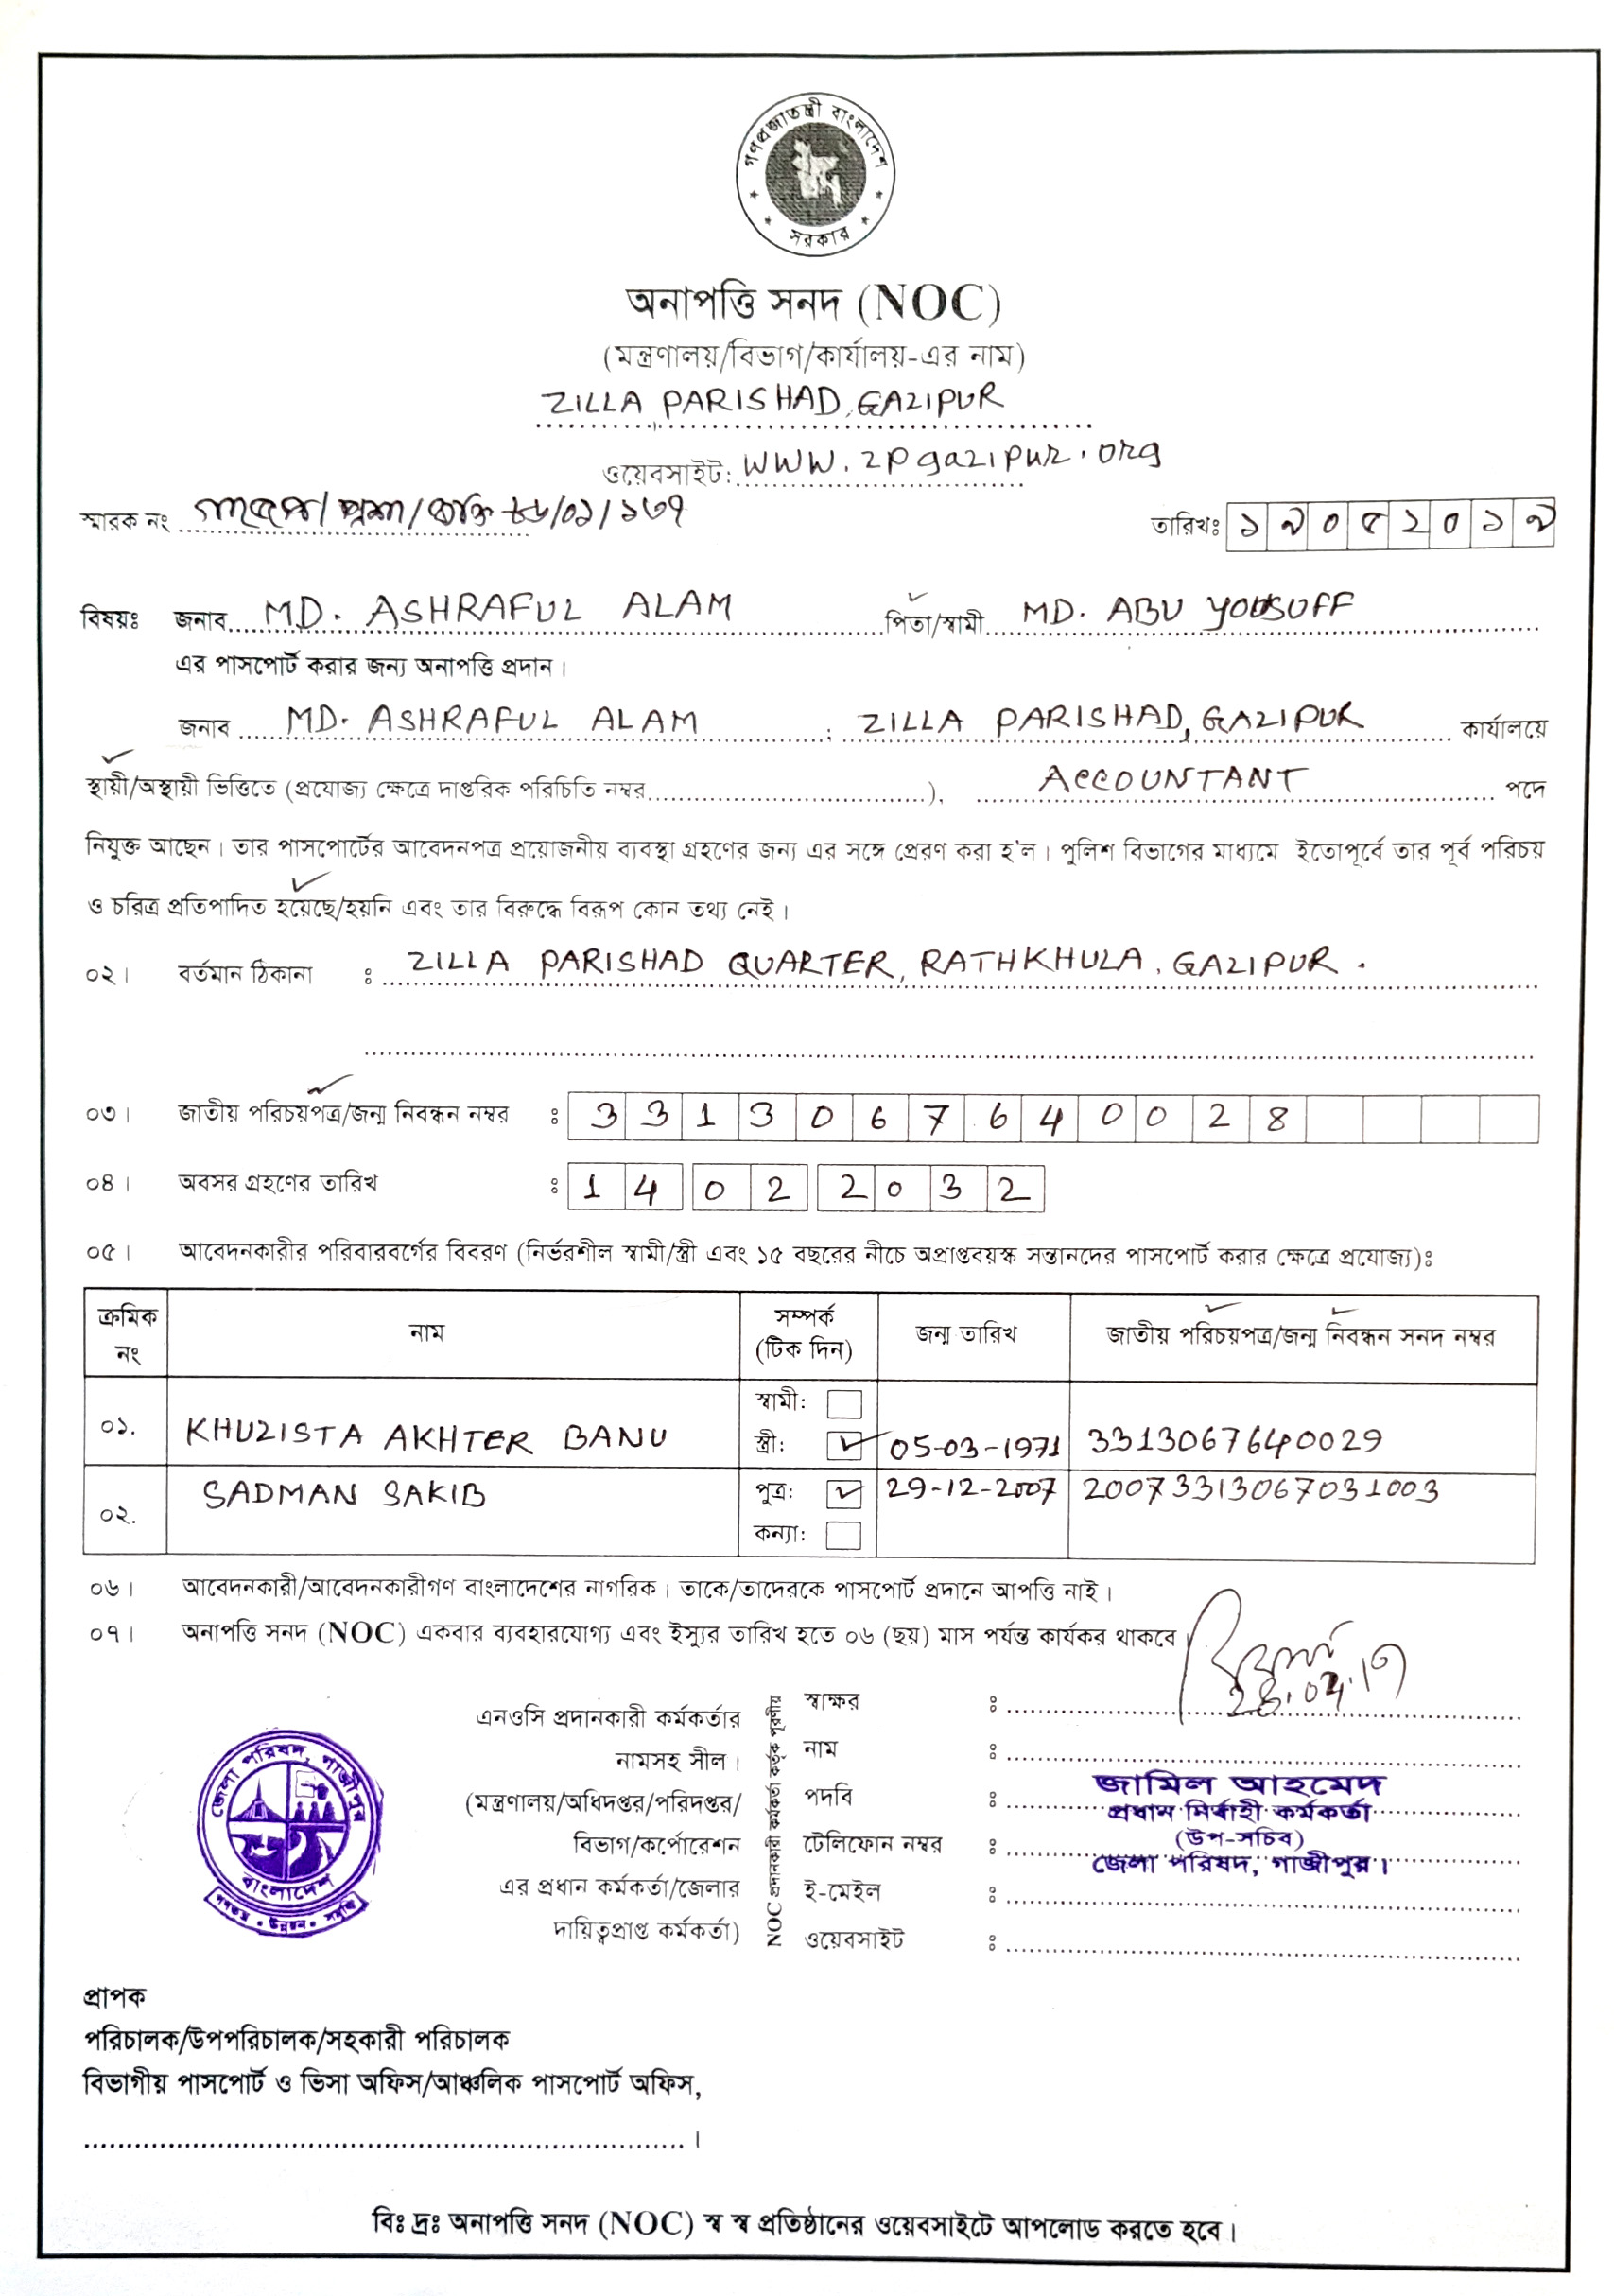 গণপ্রজাতন্ত্রী বাংলাদেশ
সরকার
অনাপত্তি সনদ (NOC)
(মন্ত্রণালয়/বিভাগ/কার্যালয়-এর নাম)
ZILLA PARISHAD, GAZIPUR
ওয়েবসাইট: www.zpgazipur.org
স্মারক নং
তারিখঃ ১৯০৫২০১৯
বিষয়ঃ জনাব MD. ASHRAFUL ALAM পিতা/স্বামী MD. ABU YOUSUFF
এর পাসপোর্ট করার জন্য অনাপত্তি প্রদান।
জনাব MD. ASHRAFUL ALAM ; ZILLA PARISHAD, GAZIPUR কার্যালয়ে
স্থায়ী/অস্থায়ী ভিত্তিতে (প্রযোজ্য ক্ষেত্রে দাপ্তরিক পরিচিতি নম্বর), ACCOUNTANT পদে
নিযুক্ত আছেন। তার পাসপোর্টের আবেদনপত্র প্রয়োজনীয় ব্যবস্থা গ্রহণের জন্য এর সঙ্গে প্রেরণ করা হ'ল। পুলিশ বিভাগের মাধ্যমে ইতোপূর্বে তার পূর্ব পরিচয়
ও চরিত্র প্রতিপাদিত হয়েছে/হয়নি এবং তার বিরুদ্ধে বিরূপ কোন তথ্য নেই।
০২। বর্তমান ঠিকানা : ZILLA PARISHAD QUARTER, RATHKHULA, GAZIPUR.
০৩। জাতীয় পরিচয়পত্র/জন্ম নিবন্ধন নম্বর : 3313067640028
০৪। অবসর গ্রহণের তারিখ : 14 02 2032
০৫। আবেদনকারীর পরিবারবর্গের বিবরণ (নির্ভরশীল স্বামী/স্ত্রী এবং ১৫ বছরের নীচে অপ্রাপ্তবয়স্ক সন্তানদের পাসপোর্ট করার ক্ষেত্রে প্রযোজ্য)ঃ
ক্রমিক নং নাম সম্পর্ক (টিক দিন) জন্ম তারিখ জাতীয় পরিচয়পত্র/জন্ম নিবন্ধন সনদ নম্বর
স্বামী:
০১. KHUZISTA AKHTER BANU স্ত্রী: 05-03-1971 3313067640029
SADMAN SAKIB পুত্র: 29-12-2007 20073313067031003
০২. কন্যা:
০৬। আবেদনকারী/আবেদনকারীগণ বাংলাদেশের নাগরিক। তাকে/তাদেরকে পাসপোর্ট প্রদানে আপত্তি নাই।
০৭। অনাপত্তি সনদ (NOC) একবার ব্যবহারযোগ্য এবং ইস্যুর তারিখ হতে ০৬ (ছয়) মাস পর্যন্ত কার্যকর থাকবে।
এনওসি প্রদানকারী কর্মকর্তার
নামসহ সীল।
(মন্ত্রণালয়/অধিদপ্তর/পরিদপ্তর/
বিভাগ/কর্পোরেশন
এর প্রধান কর্মকর্তা/জেলার
দায়িত্বপ্রাপ্ত কর্মকর্তা)
NOC প্রদানকারী কর্মকর্তা কর্তৃক পূরণীয়
স্বাক্ষর :
নাম :
পদবি :
টেলিফোন নম্বর :
ই-মেইল :
ওয়েবসাইট :
জামিল আহমেদ
প্রধান নির্বাহী কর্মকর্তা
(উপ-সচিব)
জেলা পরিষদ, গাজীপুর।
জেলা পরিষদ, গাজীপুর
বাংলাদেশ
প্রাপক
পরিচালক/উপপরিচালক/সহকারী পরিচালক
বিভাগীয় পাসপোর্ট ও ভিসা অফিস/আঞ্চলিক পাসপোর্ট অফিস,
বিঃ দ্রঃ অনাপত্তি সনদ (NOC) স্ব স্ব প্রতিষ্ঠানের ওয়েবসাইটে আপলোড করতে হবে।